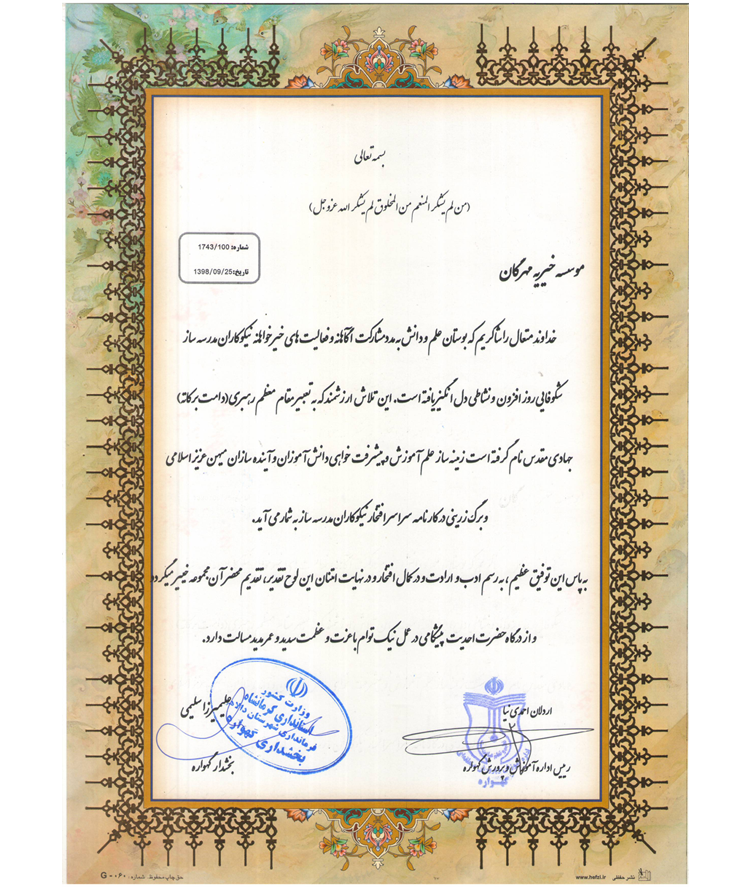 بسمه تعالی
(من لم یشکر المنعم من المخلوق لم یشکر الله عزوجل)
شماره: 1743/100
تاریخ: 1398/09/25
موسسه خیریه مهرگان
خداوند متعال را شاکریم که بوستان علم و دانش به مدد مشارکت آگاهانه و فعالیت های خیرخواهانه نیکوکاران مدرسه ساز
شکوفایی روز افزون و نشاطی دل انگیز یافته است. این تلاش ارزشمند که به تعبیر مقام معظم رهبری(دامت برکاته)
جهادی مقدس نام گرفته است زمینه ساز علم آموزش و پیشرفت خواهی دانش آموزان و آینده سازان میهن عزیز اسلامی
و برگ زرینی در کارنامه سراسر افتخار نیکوکاران مدرسه ساز به شمار می آید.
به پاس این توفیق عظیم ، به رسم ادب و ارادت و در کمال افتخار و در نهایت امتنان این لوح تقدیر، تقدیم محضر آن مجموعه خیر میگردد
و از درگاه حضرت احدیت پیشگامی در عمل نیک توام با عزت و عظمت سدید و عمر مدید مسالت دارد.
اردلان احمدی نیا
رییس اداره آموزش و پرورش گهواره
علیمیرزا سلیمی
بخشدار گهواره
وزارت کشور
استانداری کرمانشاه
فرمانداری شهرستان دالاهو
بخشداری گهواره
گهواره
نشر حفظی www.hefzi.ir
حق چاپ محفوظ. شماره: G-۰۰۶۰